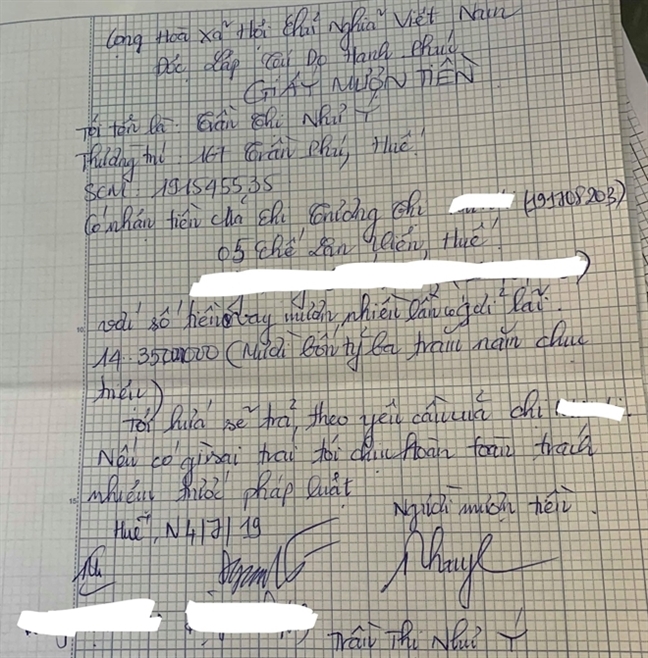 Cộng Hoà Xã Hội Chủ Nghĩa Việt Nam
Độc Lập Tự Do Hạnh Phúc
GIẤY MƯỢN TIỀN
Tôi tên là: Trần Thị Như Ý
Thường trú: 167 Trần Phú, Huế.
SCM: 191545535
Có nhận tiền của chị Trương Thị (191708203)
05 Chế Lan Viên, Huế.
với số tiền vay mượn, nhiều lần cộng lại.
14.350000000 (Mười bốn tỷ ba trăm năm chục
triệu)
Tôi hứa sẽ trả, theo yêu cầu của chị
Nếu có gì sai trái tôi chịu hoàn toàn trách
nhiệm trước pháp luật
Huế, N4/7/19
Người mượn tiền.
Trần Thị Như Ý